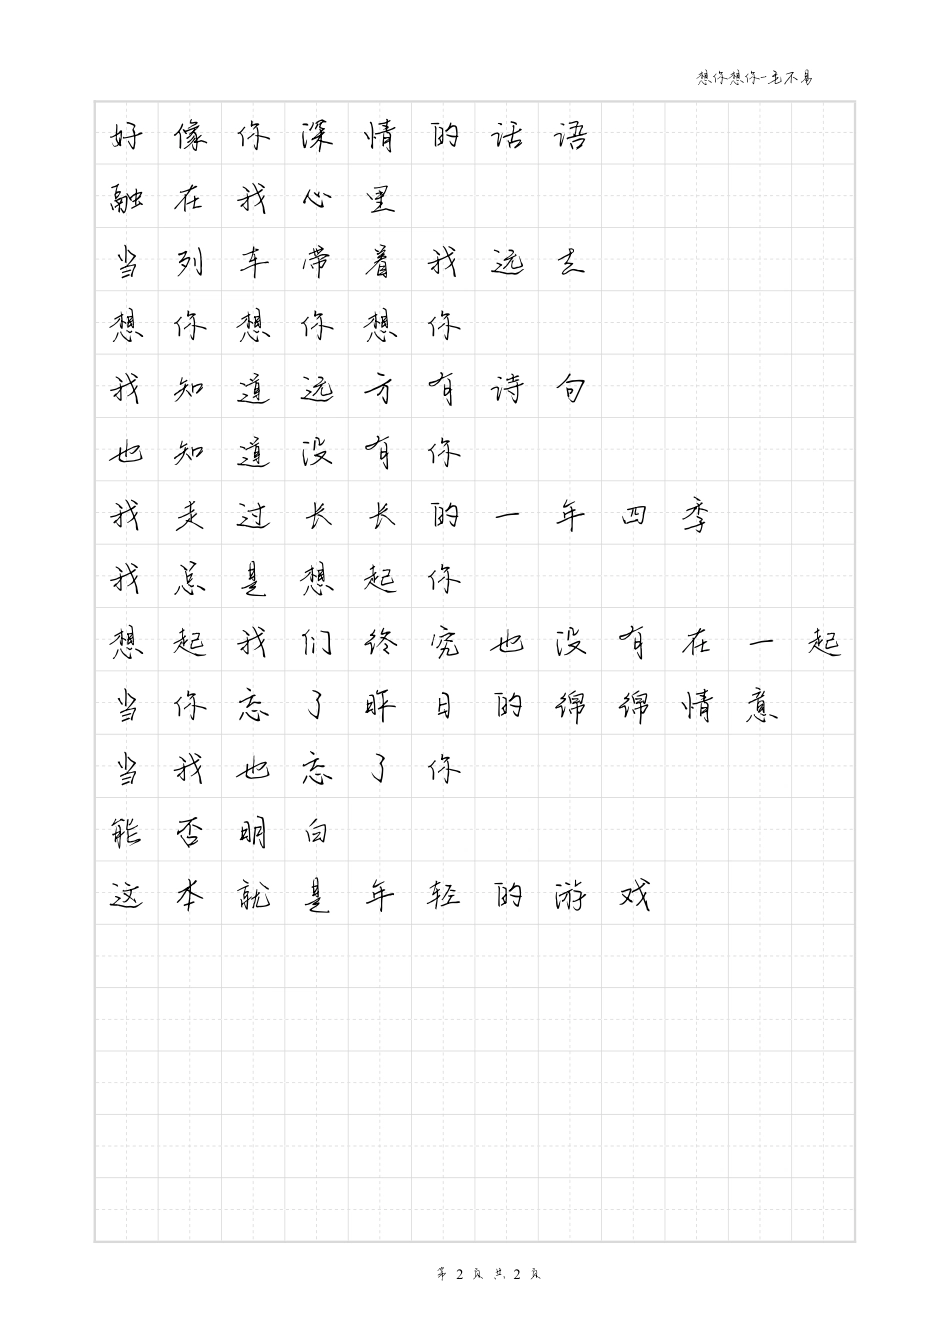 想你想你-毛不易
好像你深情的话语
融在我心里
当列车带着我远去
想你想你想你
我知道远方有诗句
也知道没有你
我走过长长的一年四季
我总是想起你
想起我们终究也没有在一起
当你忘了昨日的绵绵情意
当我也忘了你
能否明白
这本就是年轻的游戏
第 2 页 共 2 页